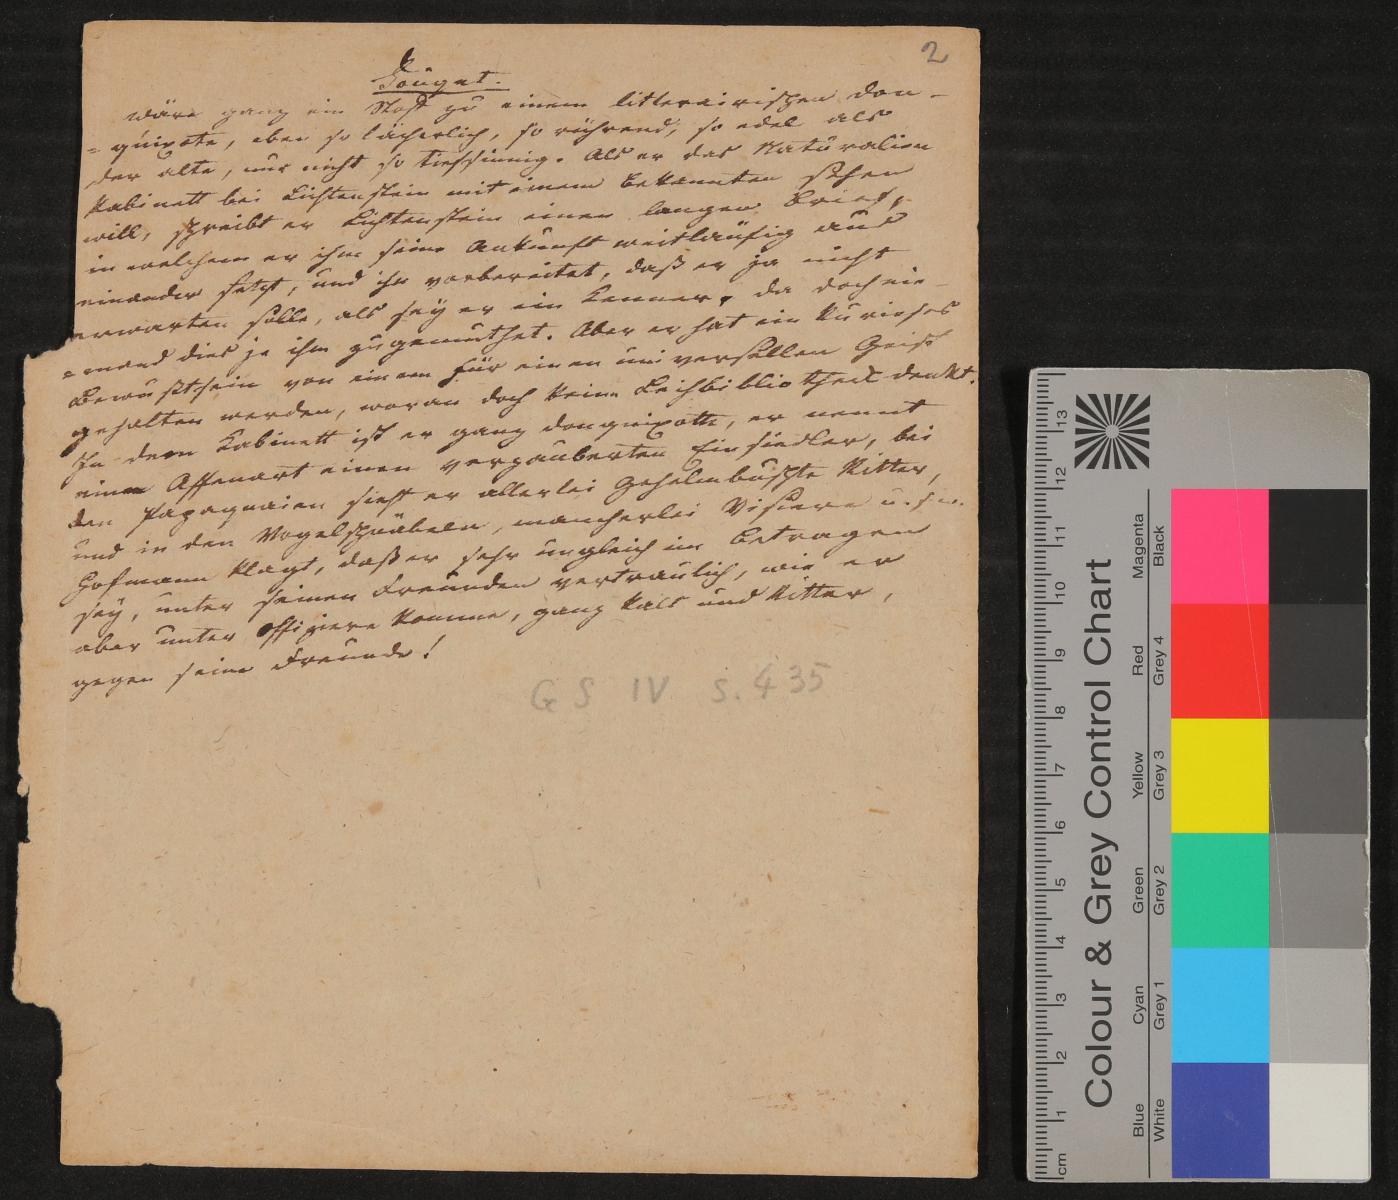 2
Fouqué.
wäre ganz ein Stoff zu einem litterairischen Don-
=quixote, eben so lächerlich, so rührend, so edel als
der alte, nur nicht so tiefsinnig. Als er das Naturalien
Kabinett bei Lichtenstein mit einem Bekannten sehen
will, schreibt er Lichtenstein einen langen Brief,
in welchem er ihm seine Ankunft weitläufig aus
einander setzt, und ihn vorbereitet, daß er ja nicht
erwarten solle, als sey er ein Kenner, da doch nie-
=mand dies je ihm zugemuthet. Aber er hat ein kurioses
Bewußtsein von einem für einen universellen Geist
gehalten werden, woran doch keine Leihbibliothek denkt.
In dem Kabinett ist er ganz donquixotte, er nennt
eine Affenart einen verzauberten Einsiedler, bei
den Papagaien sieht er allerlei gehelmbuschte Ritter,
und in den Vogelschnäbeln, mancherlei Visiere u.s.w.
Hofmann klagt, daß er sehr ungleich im Betragen
sey, unter seinen Freunden vertraulich, wie er
aber unter Offiziere komme, ganz kalt und Ritter,
gegen seine Freunde!
GS IV S. 435
Colour & Grey Control Chart
Blue Cyan Green Yellow Red Magenta
White Grey 1 Grey 2 Grey 3 Grey 4 Black
cm 1 2 3 4 5 6 7 8 9 10 11 12 13